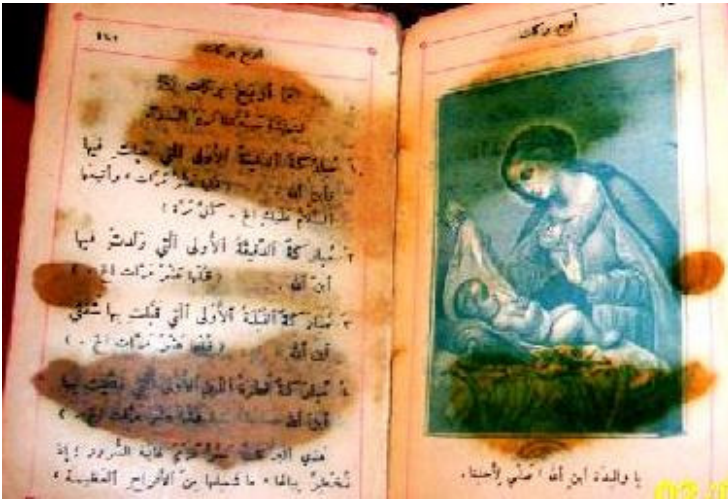 اربع بركات
اربع بركات
١ مباركة الدقيقة الأولى التي حبلت فيها
بابن الله ( قلها عشر مرات ، وأتبعها
السلام عليك الخ . كل مرة )
٢ مباركة الدقيقة الأولى التي ولدت فيها
ابن الله ( قلها عشر مرات الخ . )
٣ مباركة القبلة الأولى التي قبلت بها شفتي
ابن الله ( قلها عشر مرات الخ . )
٤ مباركة قطرة اللبن الأولى التي
ابن الله قلها عشر مرات الخ . )
هذي البركات غاية السرور ; إذ
من الأفراح العظيمة ،
أربع بركات
يا والدة ابن الله ! صلي لأجلنا .